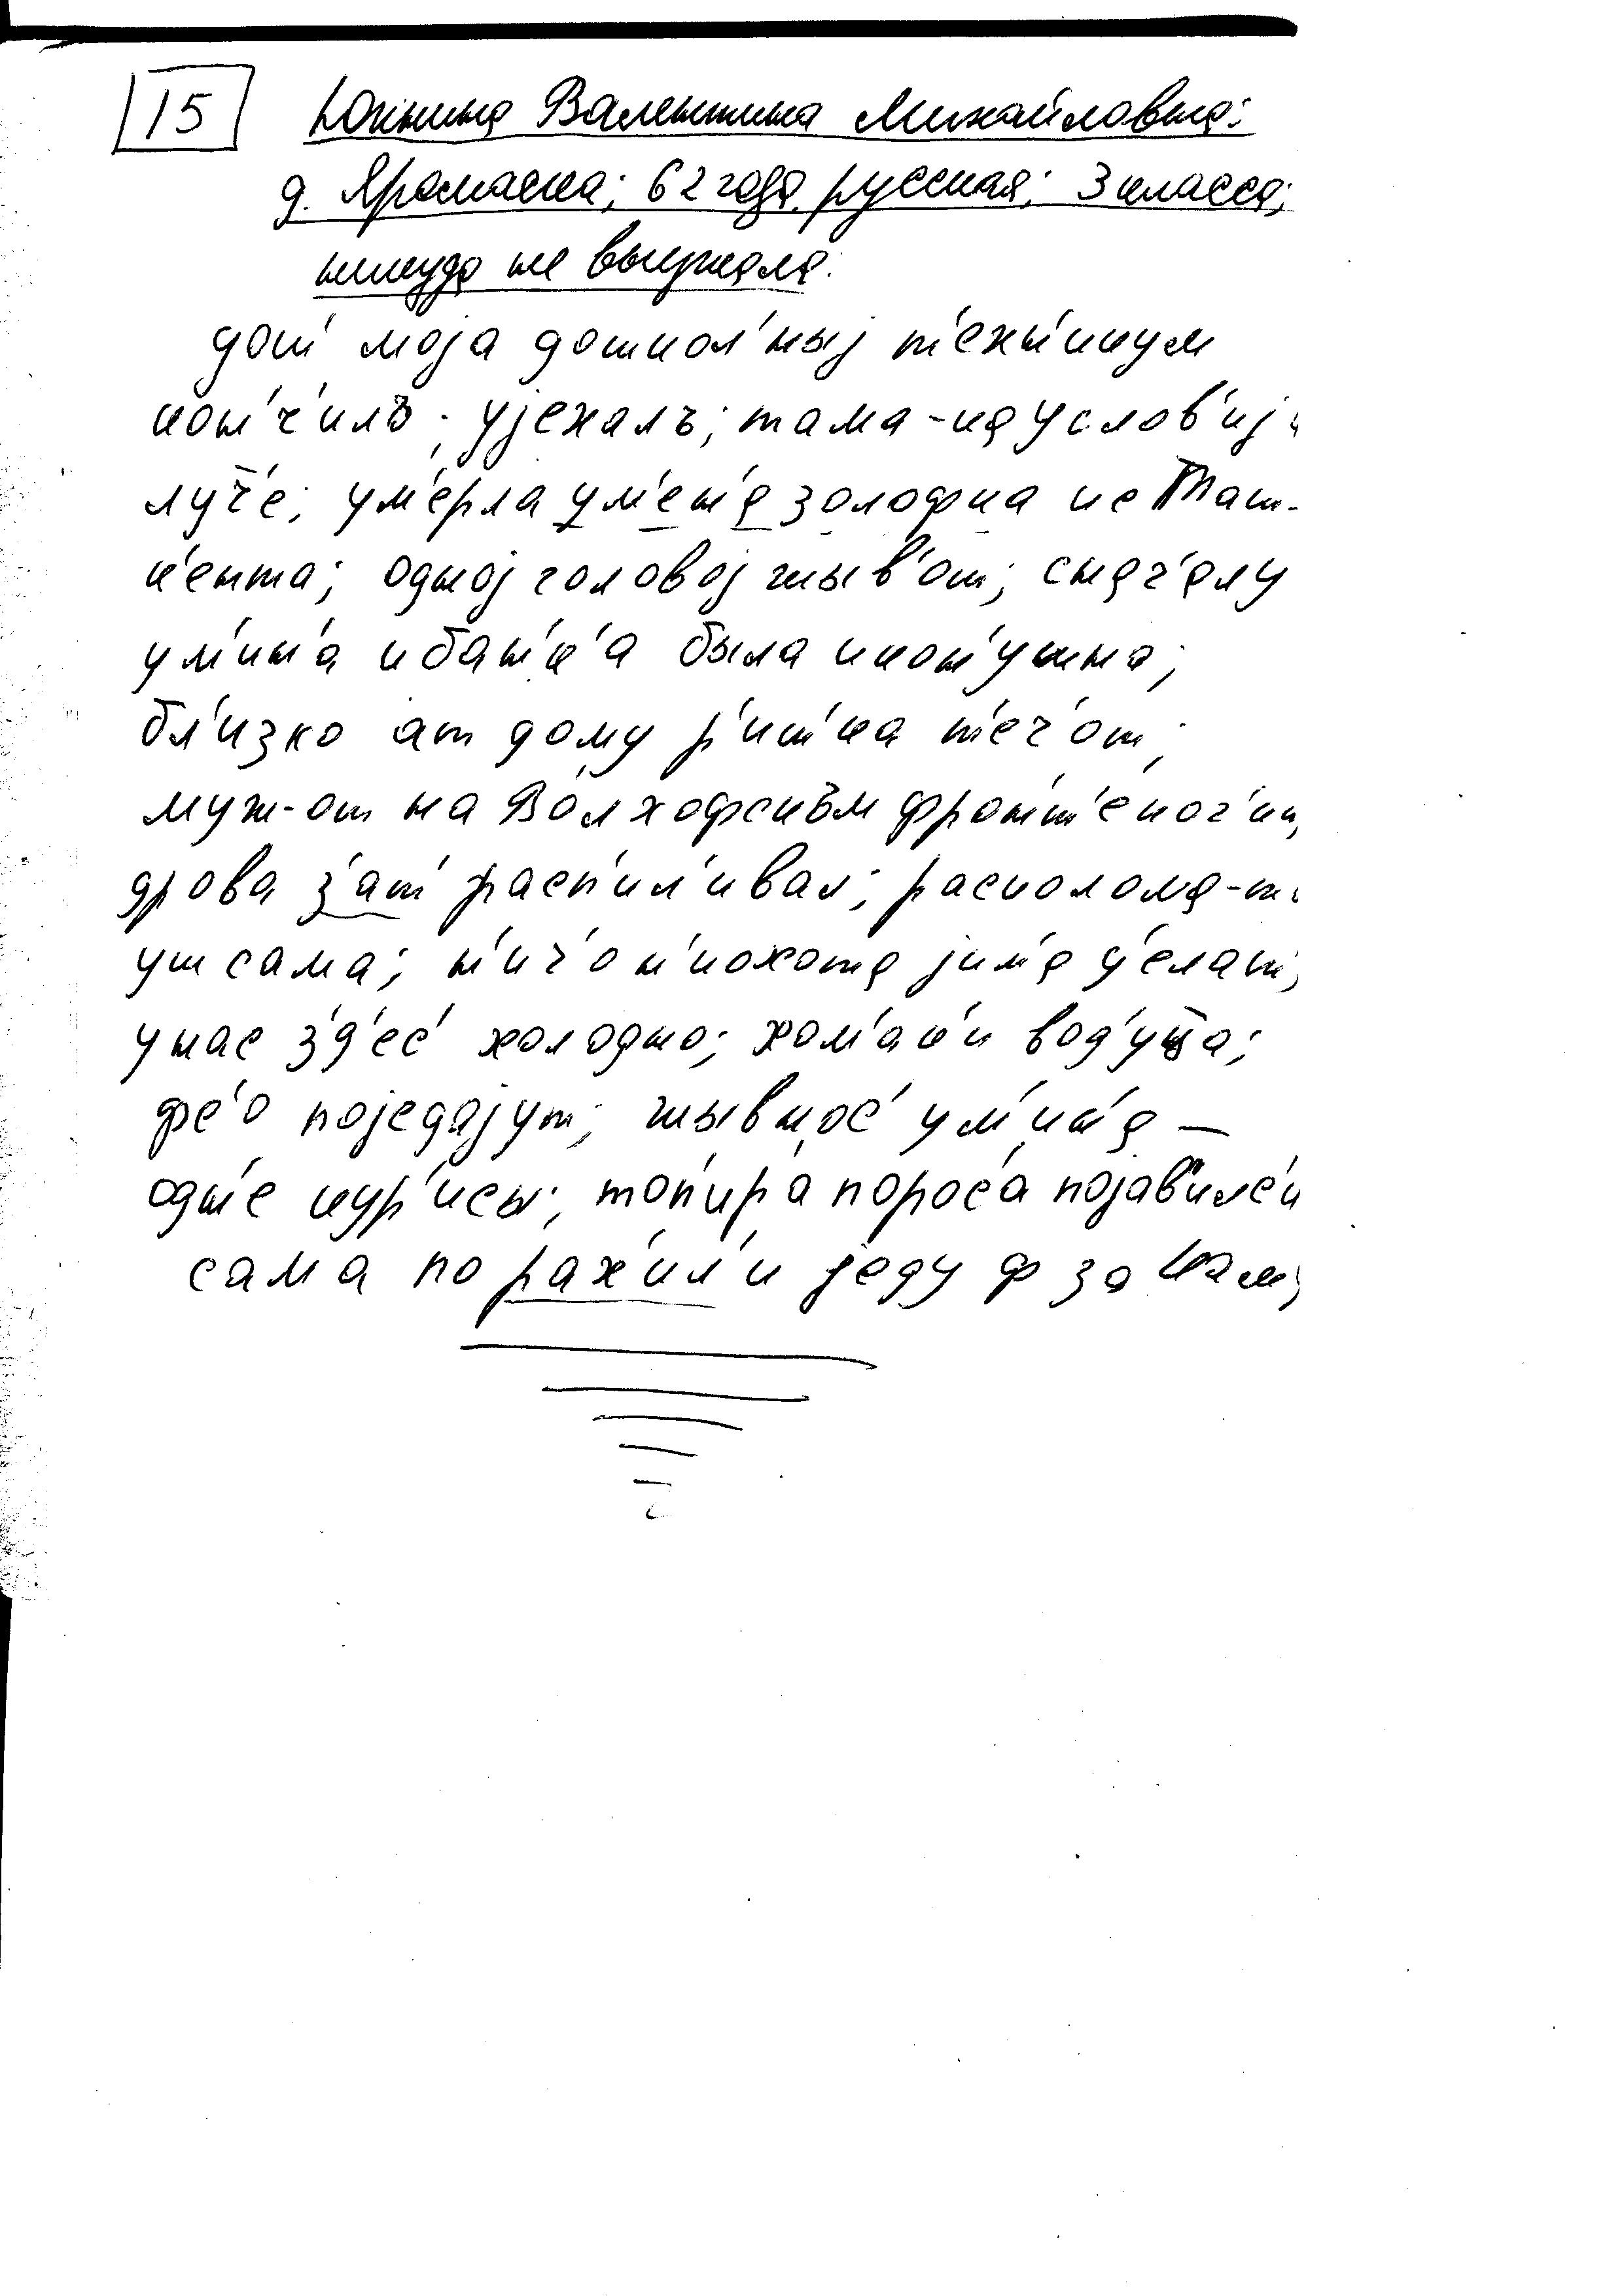 15 Юннина Валентина Михайловна:
д. Яромаска; 62 года, русская; 3 класса;
никуда не выезжала.
дош' моjа дошкол'ныj т'ехн'икум
кон'ч'илъ; уjехалъ; тама-ка услов'иj
луч'е; ум'ерла ум'ен'а золофка ис Таш-
к'ента; одноj головоj жыв'от; снач'алу
ум'ин'а и бан'к'а была и кон'ушна;
бл'изко ат дому р'ич'ка т'еч'от;
муж-от на Волхофскъм фронт'е пог'иб,
дрова з'ат' расп'ил'ивал; расколола-т
уш сама; н'ич'о н'иохота jим'а д'елат',
унас з'д'ес' холодно; хом'ак'и вод'уцца;
фс'о поjедаjут; жывнос' ум'ин'а —
одн'е кур'исы; топ'ир'а порос'а поjав'илс'и
сама по рах'ил'и jеду ф заКам;